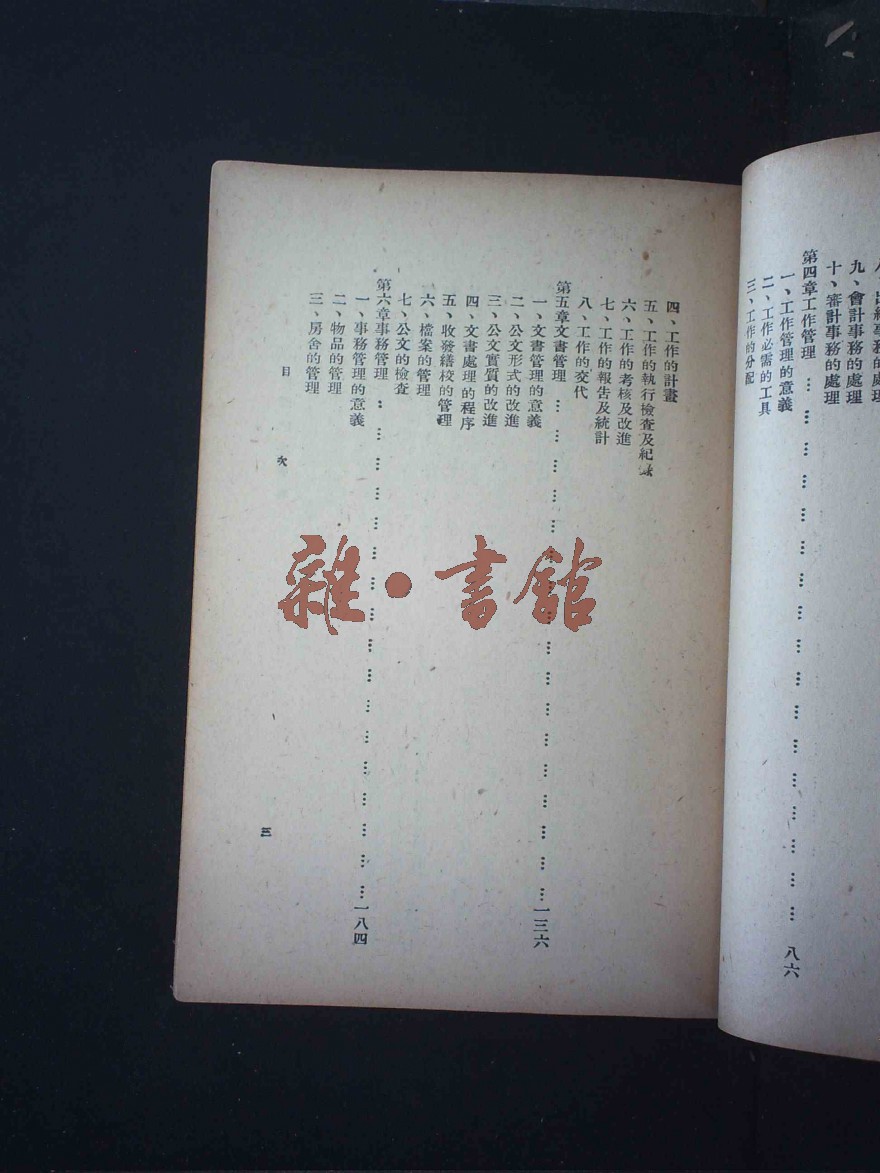 出納事務的處理
九、會計事務的處理
十、審計事務的處理
第四章工作管理 … … … … … … … … … … … … … … … 八六
一、工作管理的意義
二、工作必需的工具
三、工作的分配
四、工作的計畫
五、工作的執行檢查及紀錄
六、工作的考核及改進
七、工作的報告及統計
八、工作的交代
第五章文書管理 … … … … … … … … … … … … … … … … 一三六
一、文書管理的意義
二、公文形式的改進
三、公文實質的改進
四、文書處理的程序
五、收發繕校的管理
六、檔案的管理
七、公文的檢查
第六章事務管理 … … … … … … … … … … … … … … … … 一八四
一、事務管理的意義
二、物品的管理
三、房舍的管理
目 次
三
雜·書館